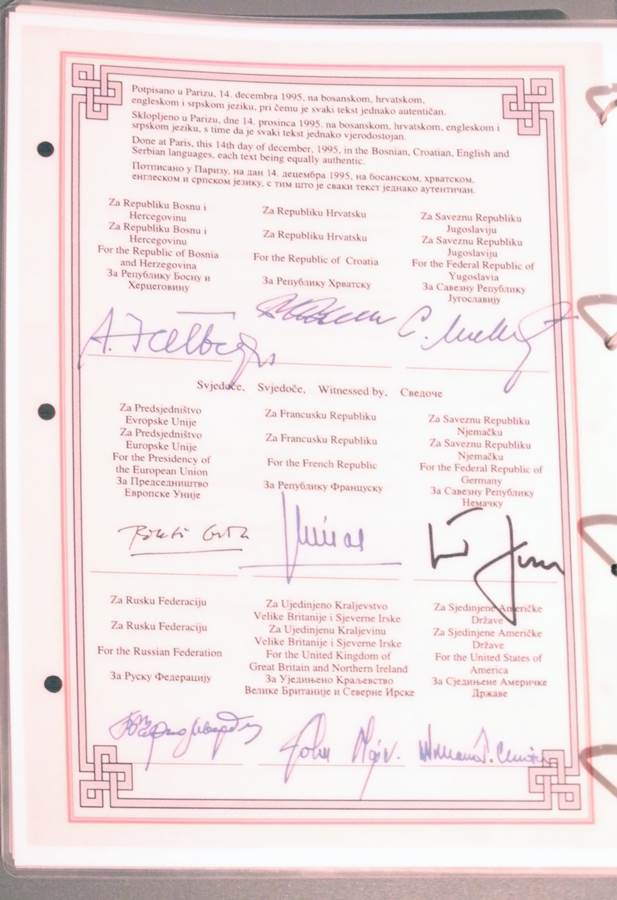 Potpisano u Parizu, 14. decembra 1995, na bosanskom, hrvatskom,
engleskom i srpskom jeziku, pri čemu je svaki tekst jednako autentičan.
Sklopljeno u Parizu, dne 14. prosinca 1995. na bosanskom, hrvatskom, engleskom i
srpskom jeziku, s time da je svaki tekst jednako vjerodostojan.
Done at Paris, this 14th day of december, 1995, in the Bosnian, Croatian, English and
Serbian languages, each text being equally authentic.
Потписано у Паризу, на дан 14. децембра 1995, на босанском, хрватском,
енглеском и српском језику, с тим што је сваки текст једнако аутентичан.
Za Republiku Bosnu i
Hercegovinu
Za Republiku Bosnu i
Hercegovinu
For the Republic of Bosnia
and Herzegovina
За Републику Босну и
Херцеговину
Za Republiku Hrvatsku
Za Republiku Hrvatsku
For the Republic of Croatia
За Републику Хрватску
Za Saveznu Republiku
Jugoslaviju
Za Saveznu Republiku
Jugoslaviju
For the Federal Republic of
Yugoslavia
За Савезну Републику
Југославију
Svjedoče, Svjedoče, Witnessed by, Сведоче
Za Predsjedništvo
Evropske Unije
Za Predsjedništvo
Europske Unije
For the Presidency of
the European Union
За Председништво
Европске Уније
Za Francusku Republiku
Za Francusku Republiku
For the French Republic
За Републику Француску
Za Saveznu Republiku
Njemačku
Za Saveznu Republiku
Njemačku
For the Federal Republic of
Germany
За Савезну Републику
Немачку
Za Rusku Federaciju
Za Rusku Federaciju
For the Russian Federation
За Руску Федерацију
Za Ujedinjeno Kraljevstvo
Velike Britanije i Sjeverne Irske
Za Ujedinjenu Kraljevinu
Velike Britanije i Sjeverne Irske
For the United Kingdom of
Great Britain and Northern Ireland
За Уједињено Краљевство
Велике Британије и Северне Ирске
Za Sjedinjene Američke
Države
Za Sjedinjene Američke
Države
For the United States of
America
За Сједињене Америчке
Државе
John Major